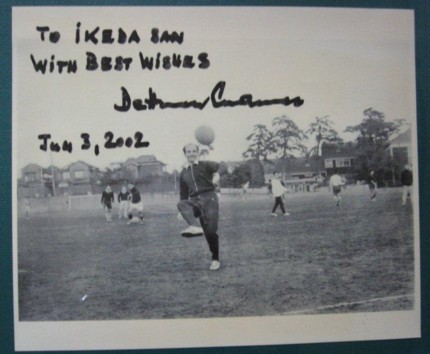 To IKEDA SAN
WITH BEST WISHES
Dettmar Cramer
Jun 3, 2002